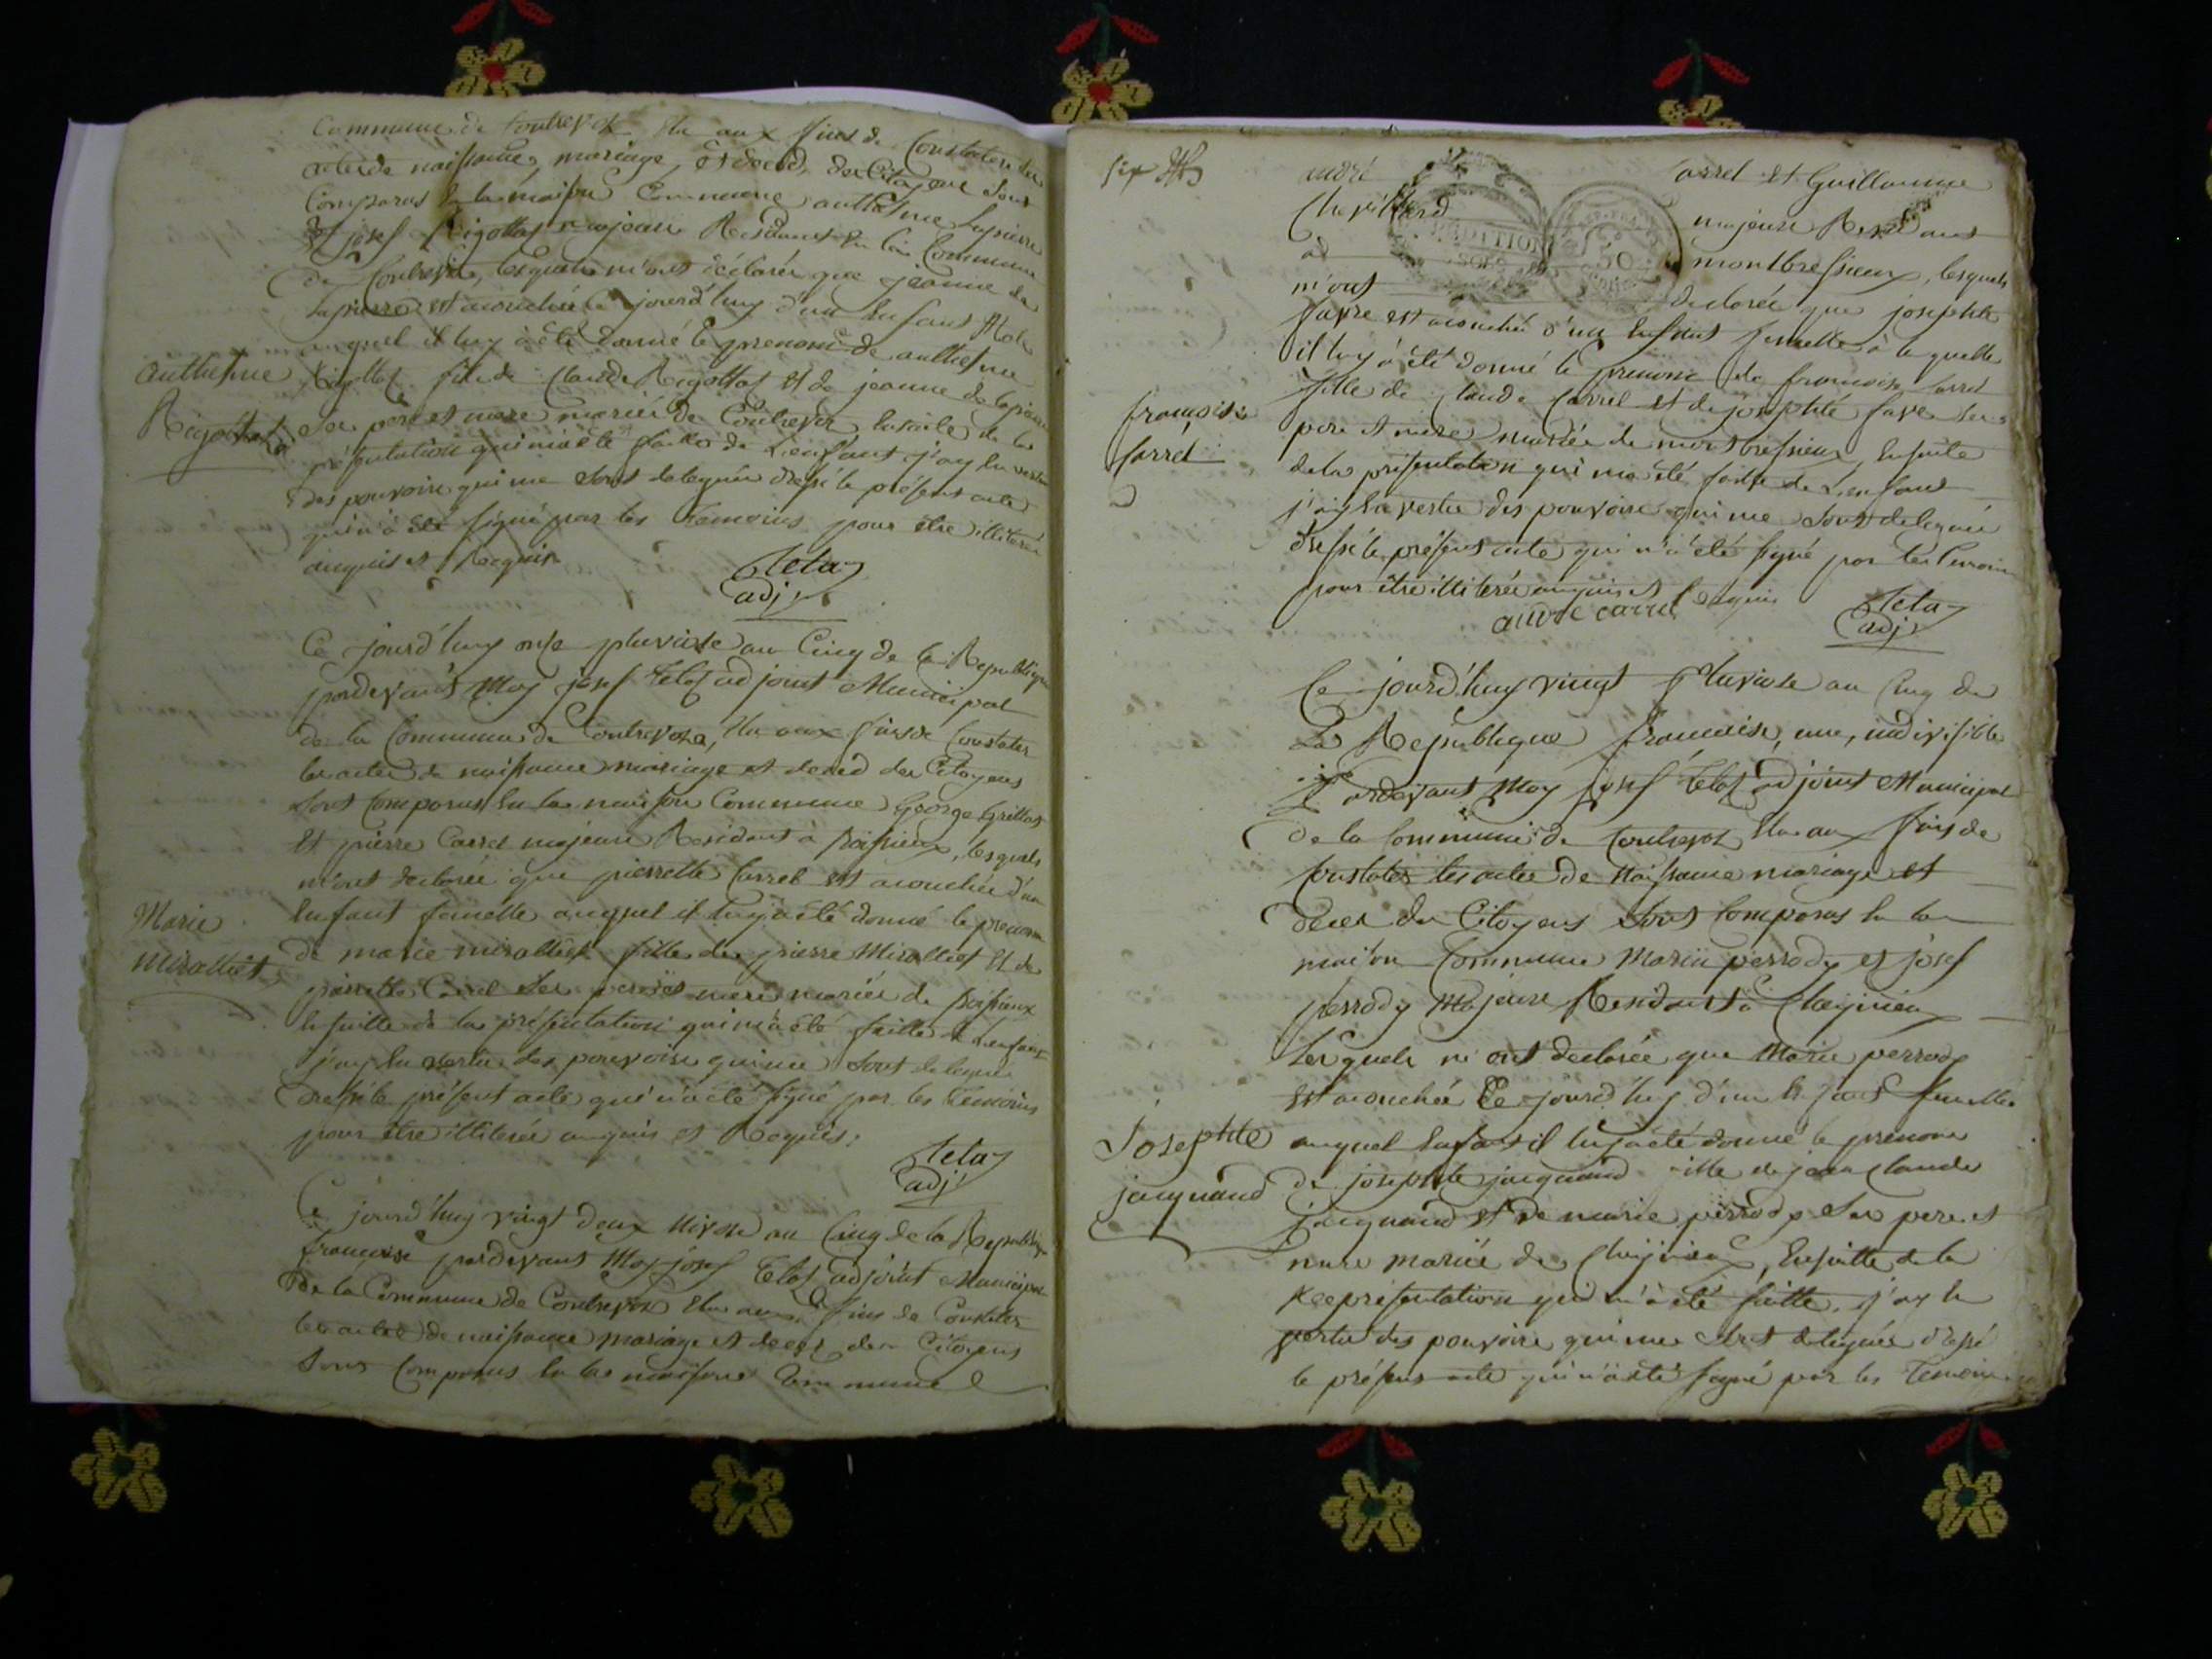 Commune de Contrevoz Elu aux fins de Constater les
actes de naissance, mariage, Et deced, des Citoyens Sont
Comparus En la maison Commune anthelme Lapierre
Et josef Rigottaz majeurs Residants En la Commune
de Contrevoz, lesquels m'ont declarée que jeanne de
lapierre est acouchée ce jourd'huy d'un Enfant Male
auquel il luy à été donné le prenom de anthelme
anthelme
Rigottaz
Rigottaz fils de Claude Rigottaz et de jeanne de lapierre
Ses pere et mere mariés de Contrevoz Ensuite de la
présentation qui m'a été faitte de L'enfant j'ay En vertu
des pouvoirs qui me sont delegués dressé le présent acte
qui n'a été signé par les Temoins pour être illiterée
enquis et Requis
Telaz
adj.
Ce jourd'huy onse pluviose an Cinq de la Republique
pardevant Moy josef Telaz adjoint Municipal
de la Commune de Contrevoz, Elu aux fins de Constater
les actes de naissance mariage et deced des Citoyens
Sont Comparus En la maison Commune George Grillaz
Et pierre Carrel majeurs Residants à preissieux, lesquels
m'ont declarée que pierrette Carrel est acouchée d'un
Enfant femelle auquel il luy à été donné le prenom
Marie
miralliet
de marie miralliet fille de pierre Miralliet Et de
pierrette Carrel Ses pere et mere mariés de preissieux
Ensuitte de la présentation qui m'a été faitte de L'enfant
j'ay En vertu des pouvoirs qui me Sont delegués
dressé le présent acte qui n'a été signé par les Temoins
pour être illiterée enquis et Requis.
Telaz
adj.
Ce jourd'huy vingt deux Nivose an Cinq de la Republique
francaise pardevant Moy josef Telaz adjoint Municipal
de la Commune de Contrevoz Elu aux fins de Constater
les actes de naissance mariage et deces des Citoyens
Sont Comparus En la maison Commune
six
andré Carrel et Guillaume
EXPEDITION
50
Chevillard majeurs Residants
à montbressieux, lesquels
m'ont declarée que josephte
favre est acouchée d'un Enfant femelle à laquelle
il luy à été donné le prenom de francoise Carrel
francoise
Carrel
fille de Claude Carrel et de josephte favre Ses
pere et mere mariée de montbressieux Ensuite
de la présentation qui m'a été faitte de L'enfant
j'ay En vertu des pouvoirs qui me Sont delegués
dressé le présent acte qui n'a été signé par les Temoins
pour être illiterée enquis et Requis
andre carrel
Telaz
adj.
Ce jourd'huy vingt Pluviose an Cinq de
La Republique francaise, une, indivisible
Pardevant Moy josef Telaz adjoint Municipal
de la Commune de Contrevoz Elu aux fins de
Constater les actes de Naissance mariage et
deces des Citoyens Sont Comparus En la
maison Commune Marin perrody et josef
perrody Majeurs Residants à Cheignieu
Lesquels m'ont declarée que Marie perrody
est acouchée Ce jourd'huy d'un Enfant femelle
Josephte
jacquand
auquel Enfant il luy à été donné le prenom
de josephte jacquand fille de jean Claude
jacquand et de marie perrody Ses pere et
mere mariée de Cheignieu, Ensuitte de la
Representation qui m'a été faitte, j'ay En
vertu des pouvoirs qui me Sont delegués dressé
le présent acte qui n'a été signé par les Temoins